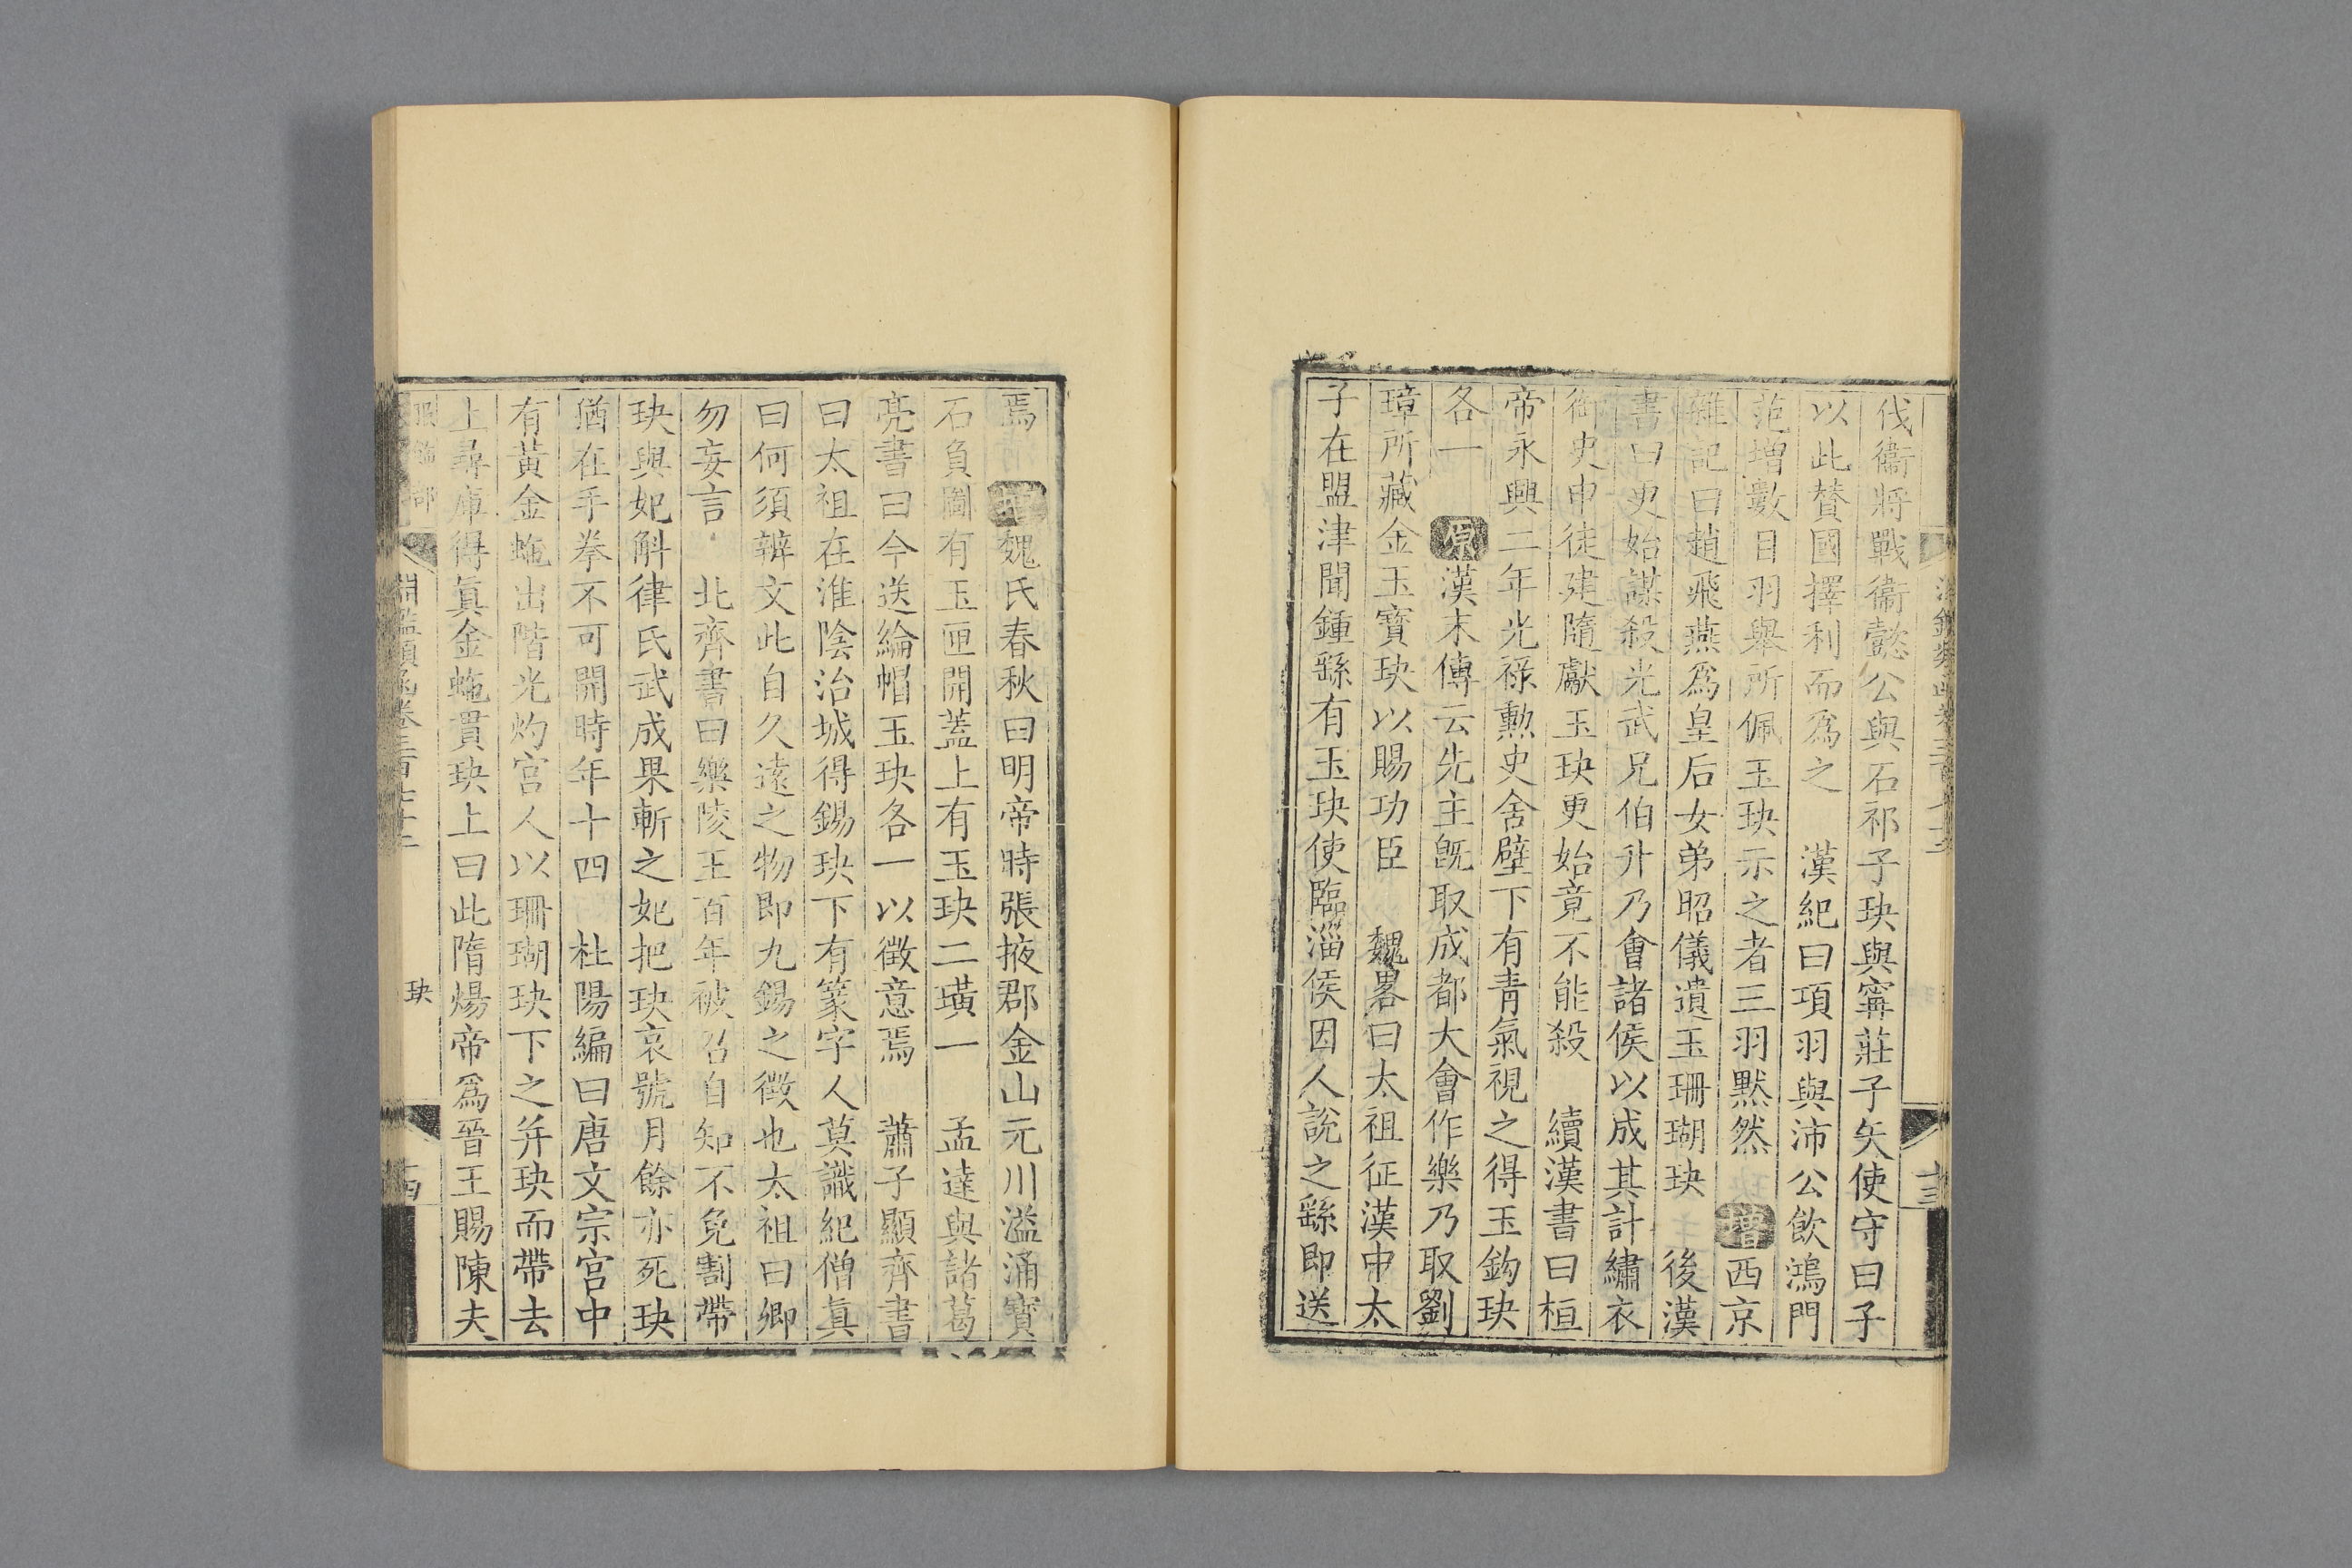 伐衞將戰衞懿公與石祁子玦與甯莊子矢使守曰子
以此贊國擇利而爲之　漢紀曰項羽與沛公飲鴻門
范增數目羽舉所佩玉玦示之者三羽默然　增西京
雜記曰趙飛燕爲皇后女弟昭儀遺玉珊瑚玦　後漢
書曰更始謀殺光武兄伯升乃會諸侯以成其計繡衣
御史申徒建隨獻玉玦更始竟不能殺　續漢書曰桓
帝永興二年光祿勲吏舍壁下有青氣視之得玉鈎玦
各一　原漢末傳云先主旣取成都大會作樂乃取劉
璋所藏金玉寳玦以賜功臣　魏畧曰太祖征漢中太
子在盟津聞鍾繇有玉玦使臨淄侯因人說之繇即送
十三
焉　增魏氏春秋曰明帝時張掖郡金山元川溢涌寳
石負圖有玉匣開蓋上有玉玦二璜一　孟達與諸葛
亮書曰今送綸帽玉玦各一以徵意焉　蕭子顯齊書
曰太祖在淮陰治城得錫玦下有篆字人莫識紀僧眞
曰何須辨文此自久遠之物即九錫之徵也太祖曰卿
勿妄言　北齊書曰樂陵王百年被召自知不免割帶
玦與妃斛律氏武成果斬之妃把玦哀號月餘亦死玦
猶在手拳不可開時年十四　杜陽編曰唐文宗宫中
有黃金虵出階光灼宫人以珊瑚玦下之并玦而帶去
上尋庫得眞金虵貫玦上曰此隋煬帝爲晉王賜陳夫
服飾部　淵鑑類函卷三百七十二　玦　十四